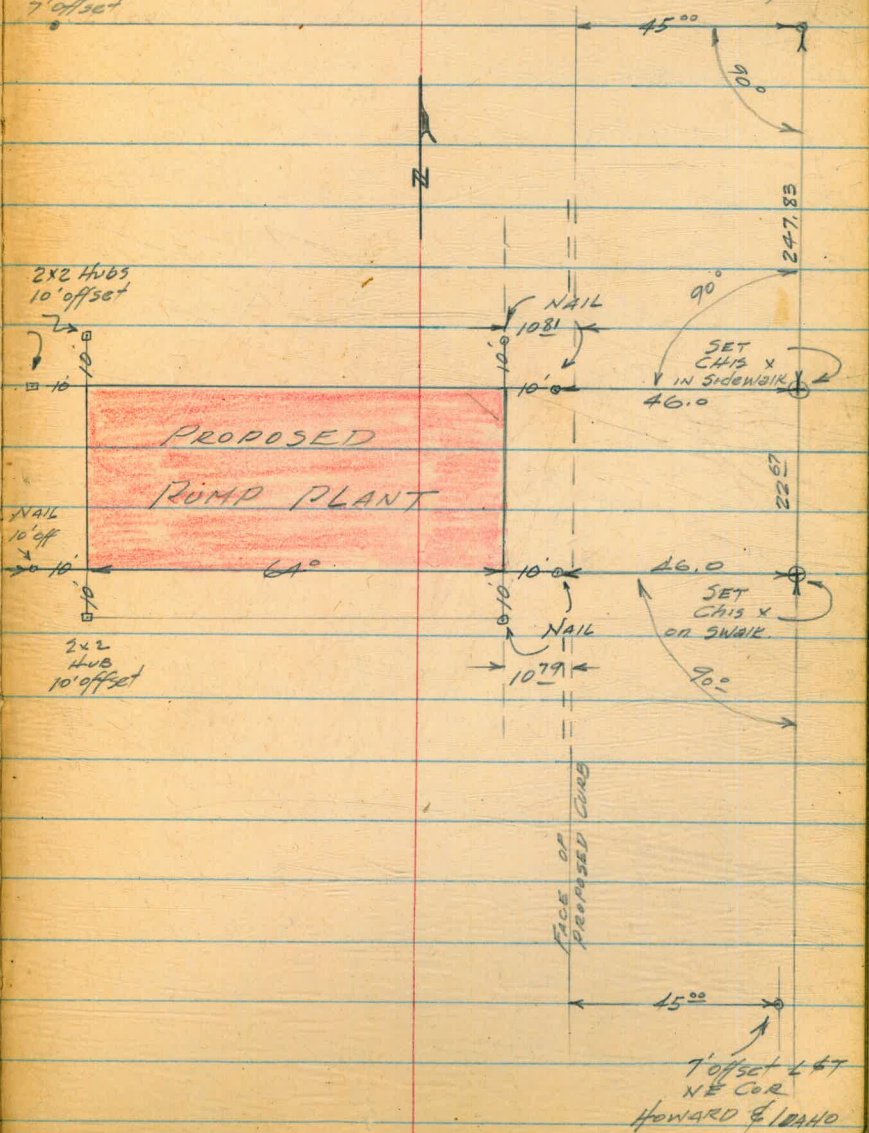 7' offset
45⁰⁰
90°
N
247.83
2x2 Hubs
10' offset
NAIL
10⁸¹
90°
10'
10'
10'
10'
SET
CHIS X
IN Sidewalk
46.0
PROPOSED
PUMP PLANT
22⁶⁷
NAIL
10' off
10'
64⁰
10'
46.0
10'
10'
SET
Chis X
on Swalk
NAIL
2x2
HUB
10' offset
10⁷⁹
90°
FACE OF
PROPOSED CURB
45⁰⁰
7' offset L &T
NE COR
HOWARD & IDAHO